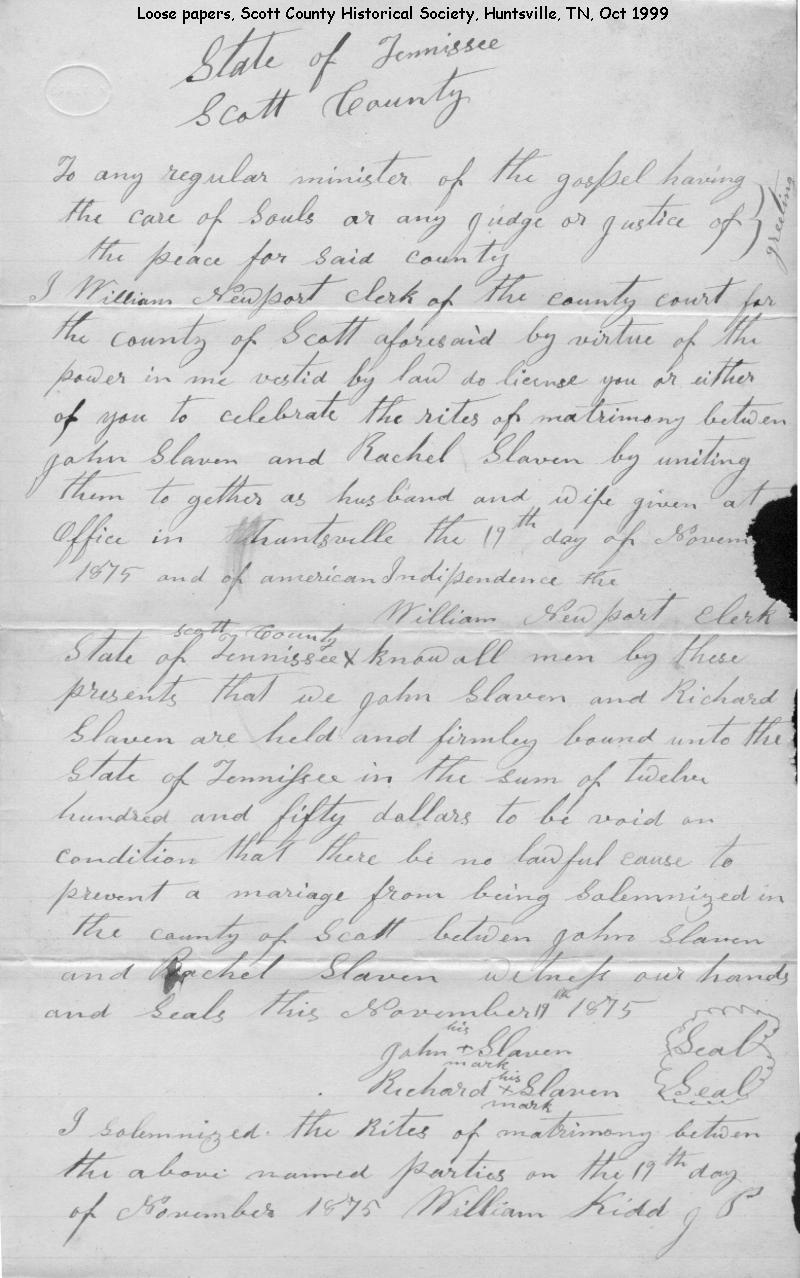 Loose papers, Scott County Historical Society, Huntsville, TN, Oct 1999
State of Tennissee
Scott County
To any regular minister of the gospel having
the care of Souls or any judge or justice of
the peace for said county
greeting
I William Newport clerk of the county court for
the county of Scott aforesaid by virtue of the
power in me vestid by law do license you or either
of you to celebrate the rites of matrimony betwen
john Slaven and Rachel Slaven by uniting
them to gether as husband and wife given at
Office in Huntsville the 19th day of Novem
1875 and of american Indipendence the
William Newport Clerk
Scott County
State of Tennissee x know all men by these
presents that we john Slaven and Richard
Slaven are held and firmley bound unto the
State of Tennissee in the sum of twelve
hundred and fifty dollars to be void on
condition that there be no lawful cause to
prevent a mariage from being Solemnized in
the county of Scott betwen john Slaven
and Rachel Slaven witness our hands
and Seals this November 19th 1875
his
john + Slaven Seal
mark
his
Richard + Slaven Seal
mark
I solemnized the Rites of matrimony betwen
the above named parties on the 19th day
of November 1875 William Kidd J P